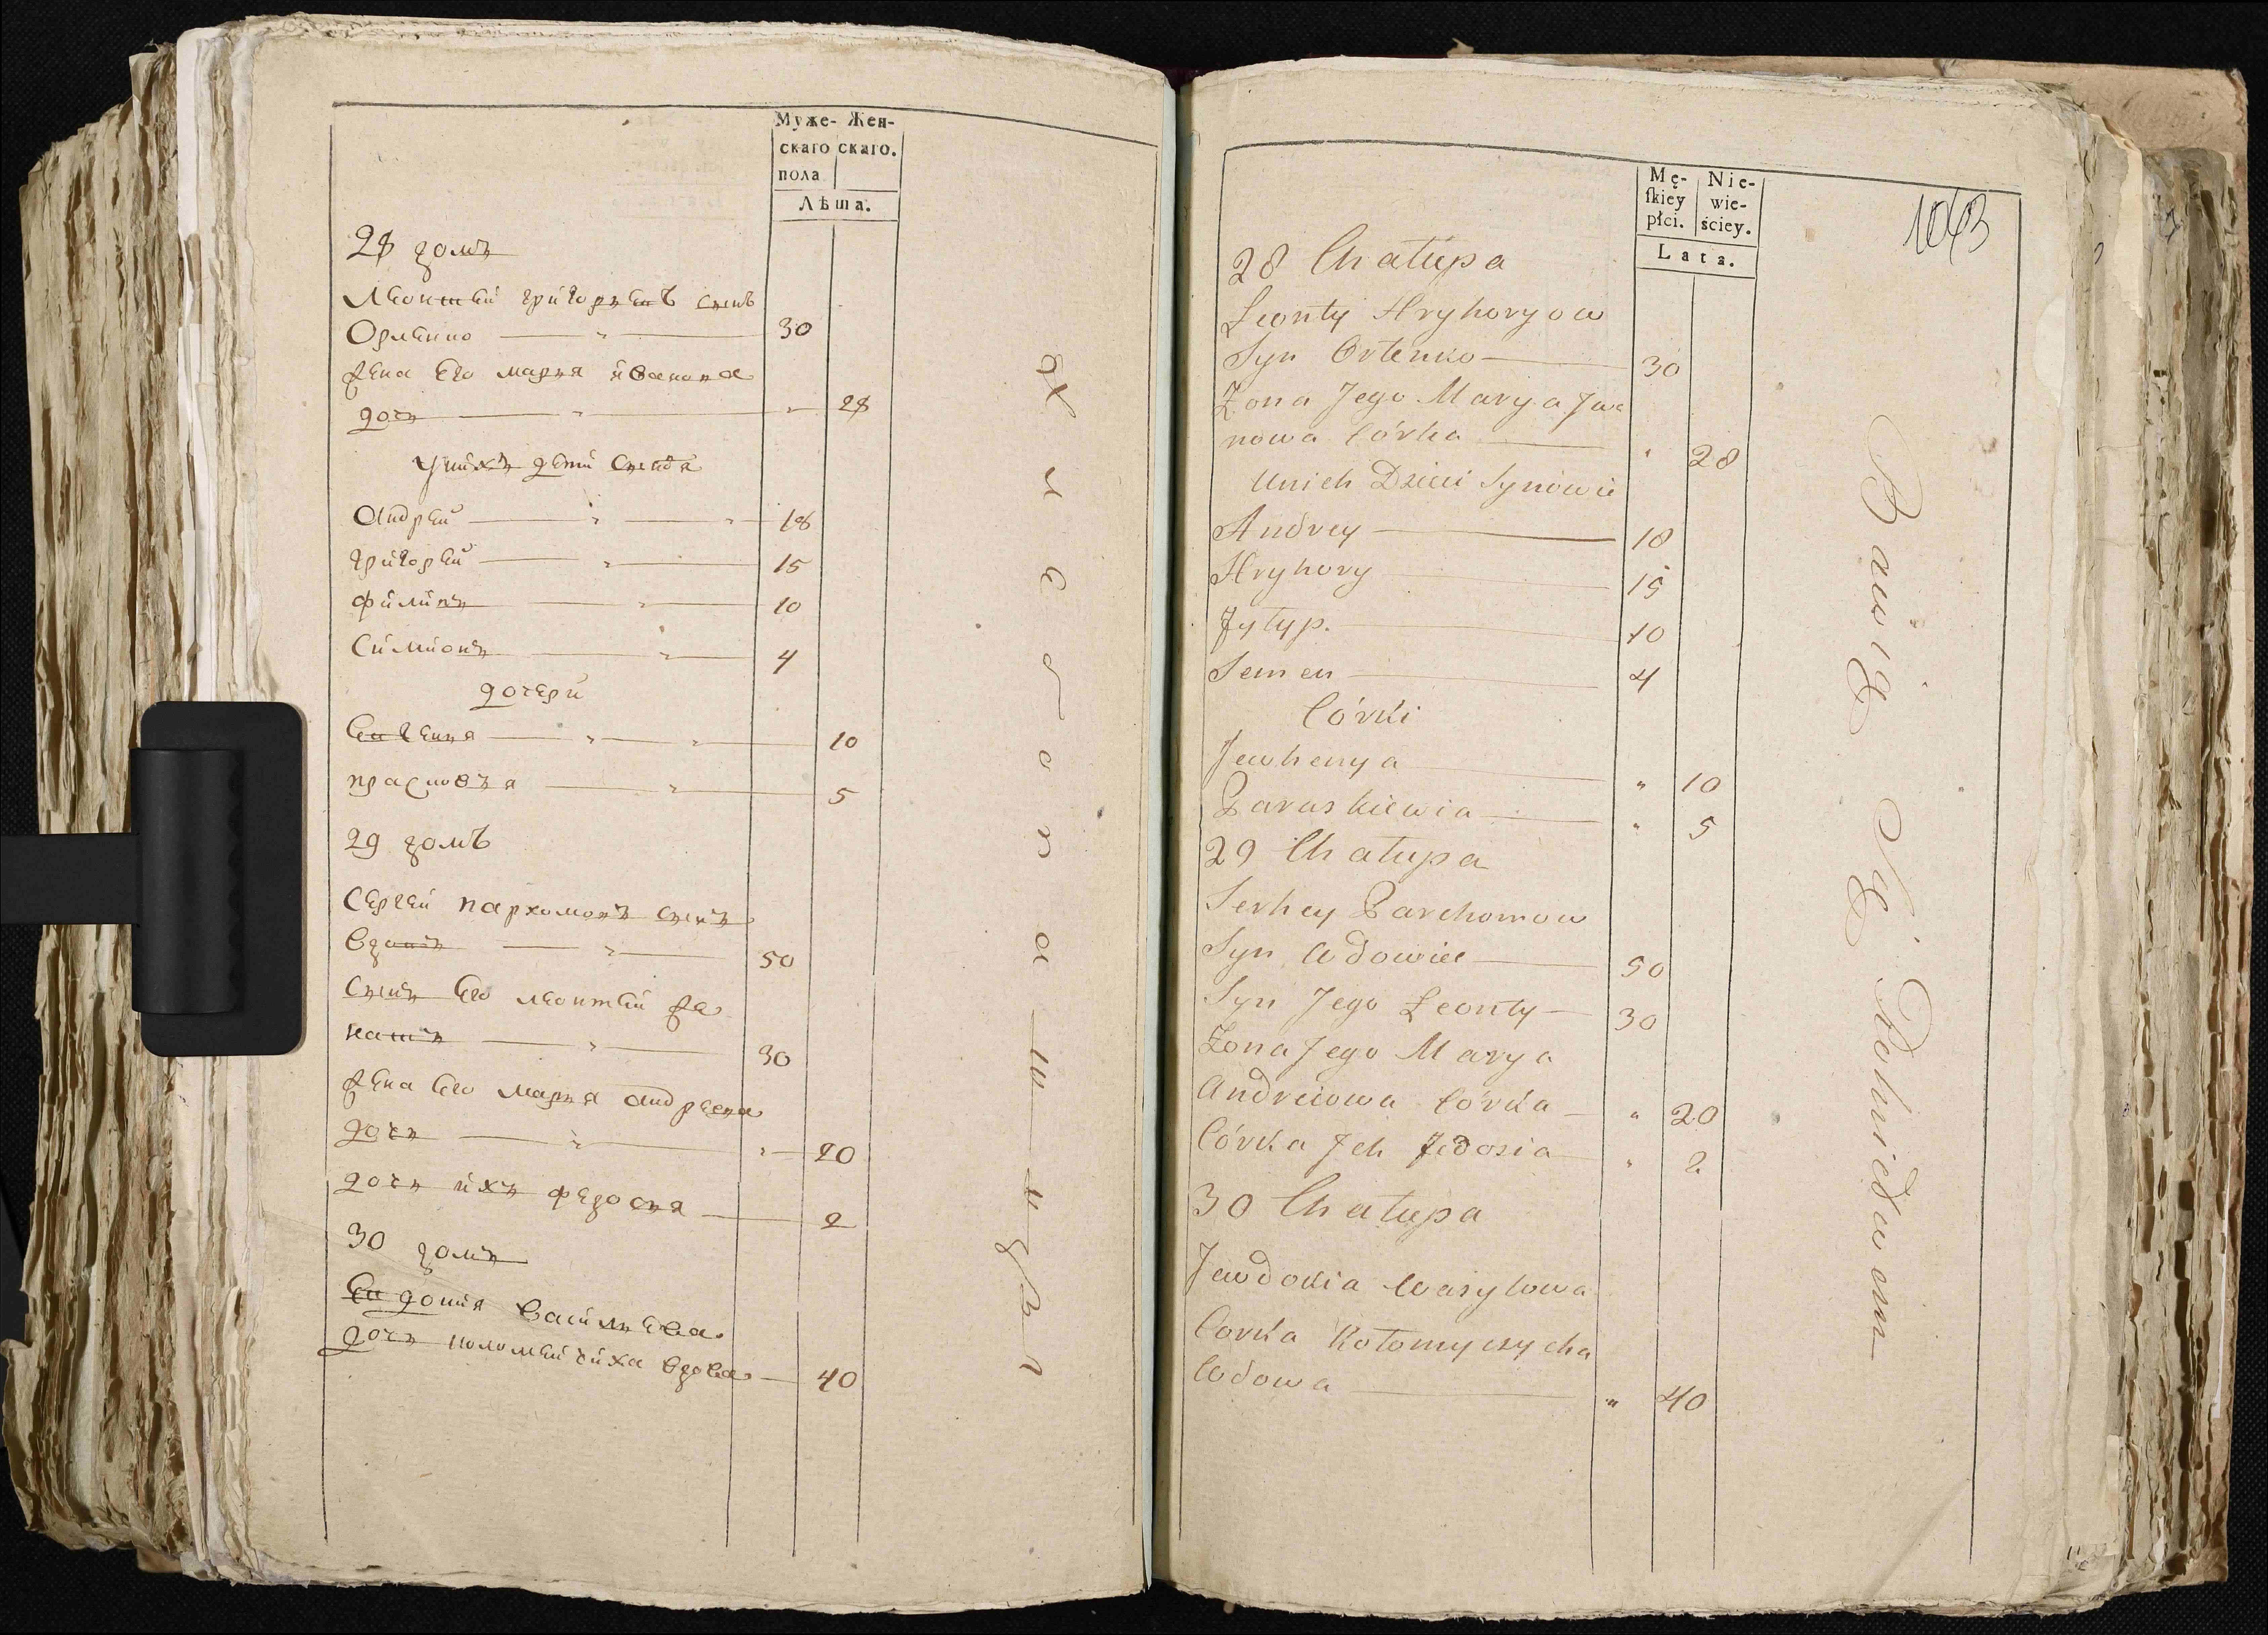 Муже- Жен-
скаго скаго.
пола
Лѣта.
28 домъ
Леонтей григорьевъ сынъ
Орленко 30
жена Его марья ивановна
дочь " 28
у нихъ дети сыновья
Андрей " " 18
григорей " 15
филипъ " 10
Симионъ " 4
дочери
Евгенья " " 10
прасковья " 5
29 домъ
Сергей пархомовъ сынъ
вдовъ " 50
Сынъ Его леонтей же
натъ " 30
жена Его марья андреева
дочь " " 20
дочь ихъ федосья 2
30 домъ
Евдокия Васильева
дочь коломейчиха вдова 40
1043
Mę- Nie-
skiey wie-
płci. ściey.
Lata.
28 Chałupa
Leonty Hryhoryow
Syn Orlenko 30
Żona Jego Marya Jwa
nowa Córka " 28
Unich Dzieci Synowie
Andrey 18
Hryhory 15
Fylyp. 10
Semen 4
Córki
Jewhenya " 10
Paraskiewia " 5
29 Chałupa
Serhey Parchomow
Syn Wdowiec 50
Syn Jego Leonty 30
Żona Jego Marya
Andreiowa Córka " 20
Córka Jch Fedosia " 2
30 Chałupa
Jewdokia Wasylowa
Corka Kołomyczycha
Wdowa " 40
Bawią Się Pohiedwom